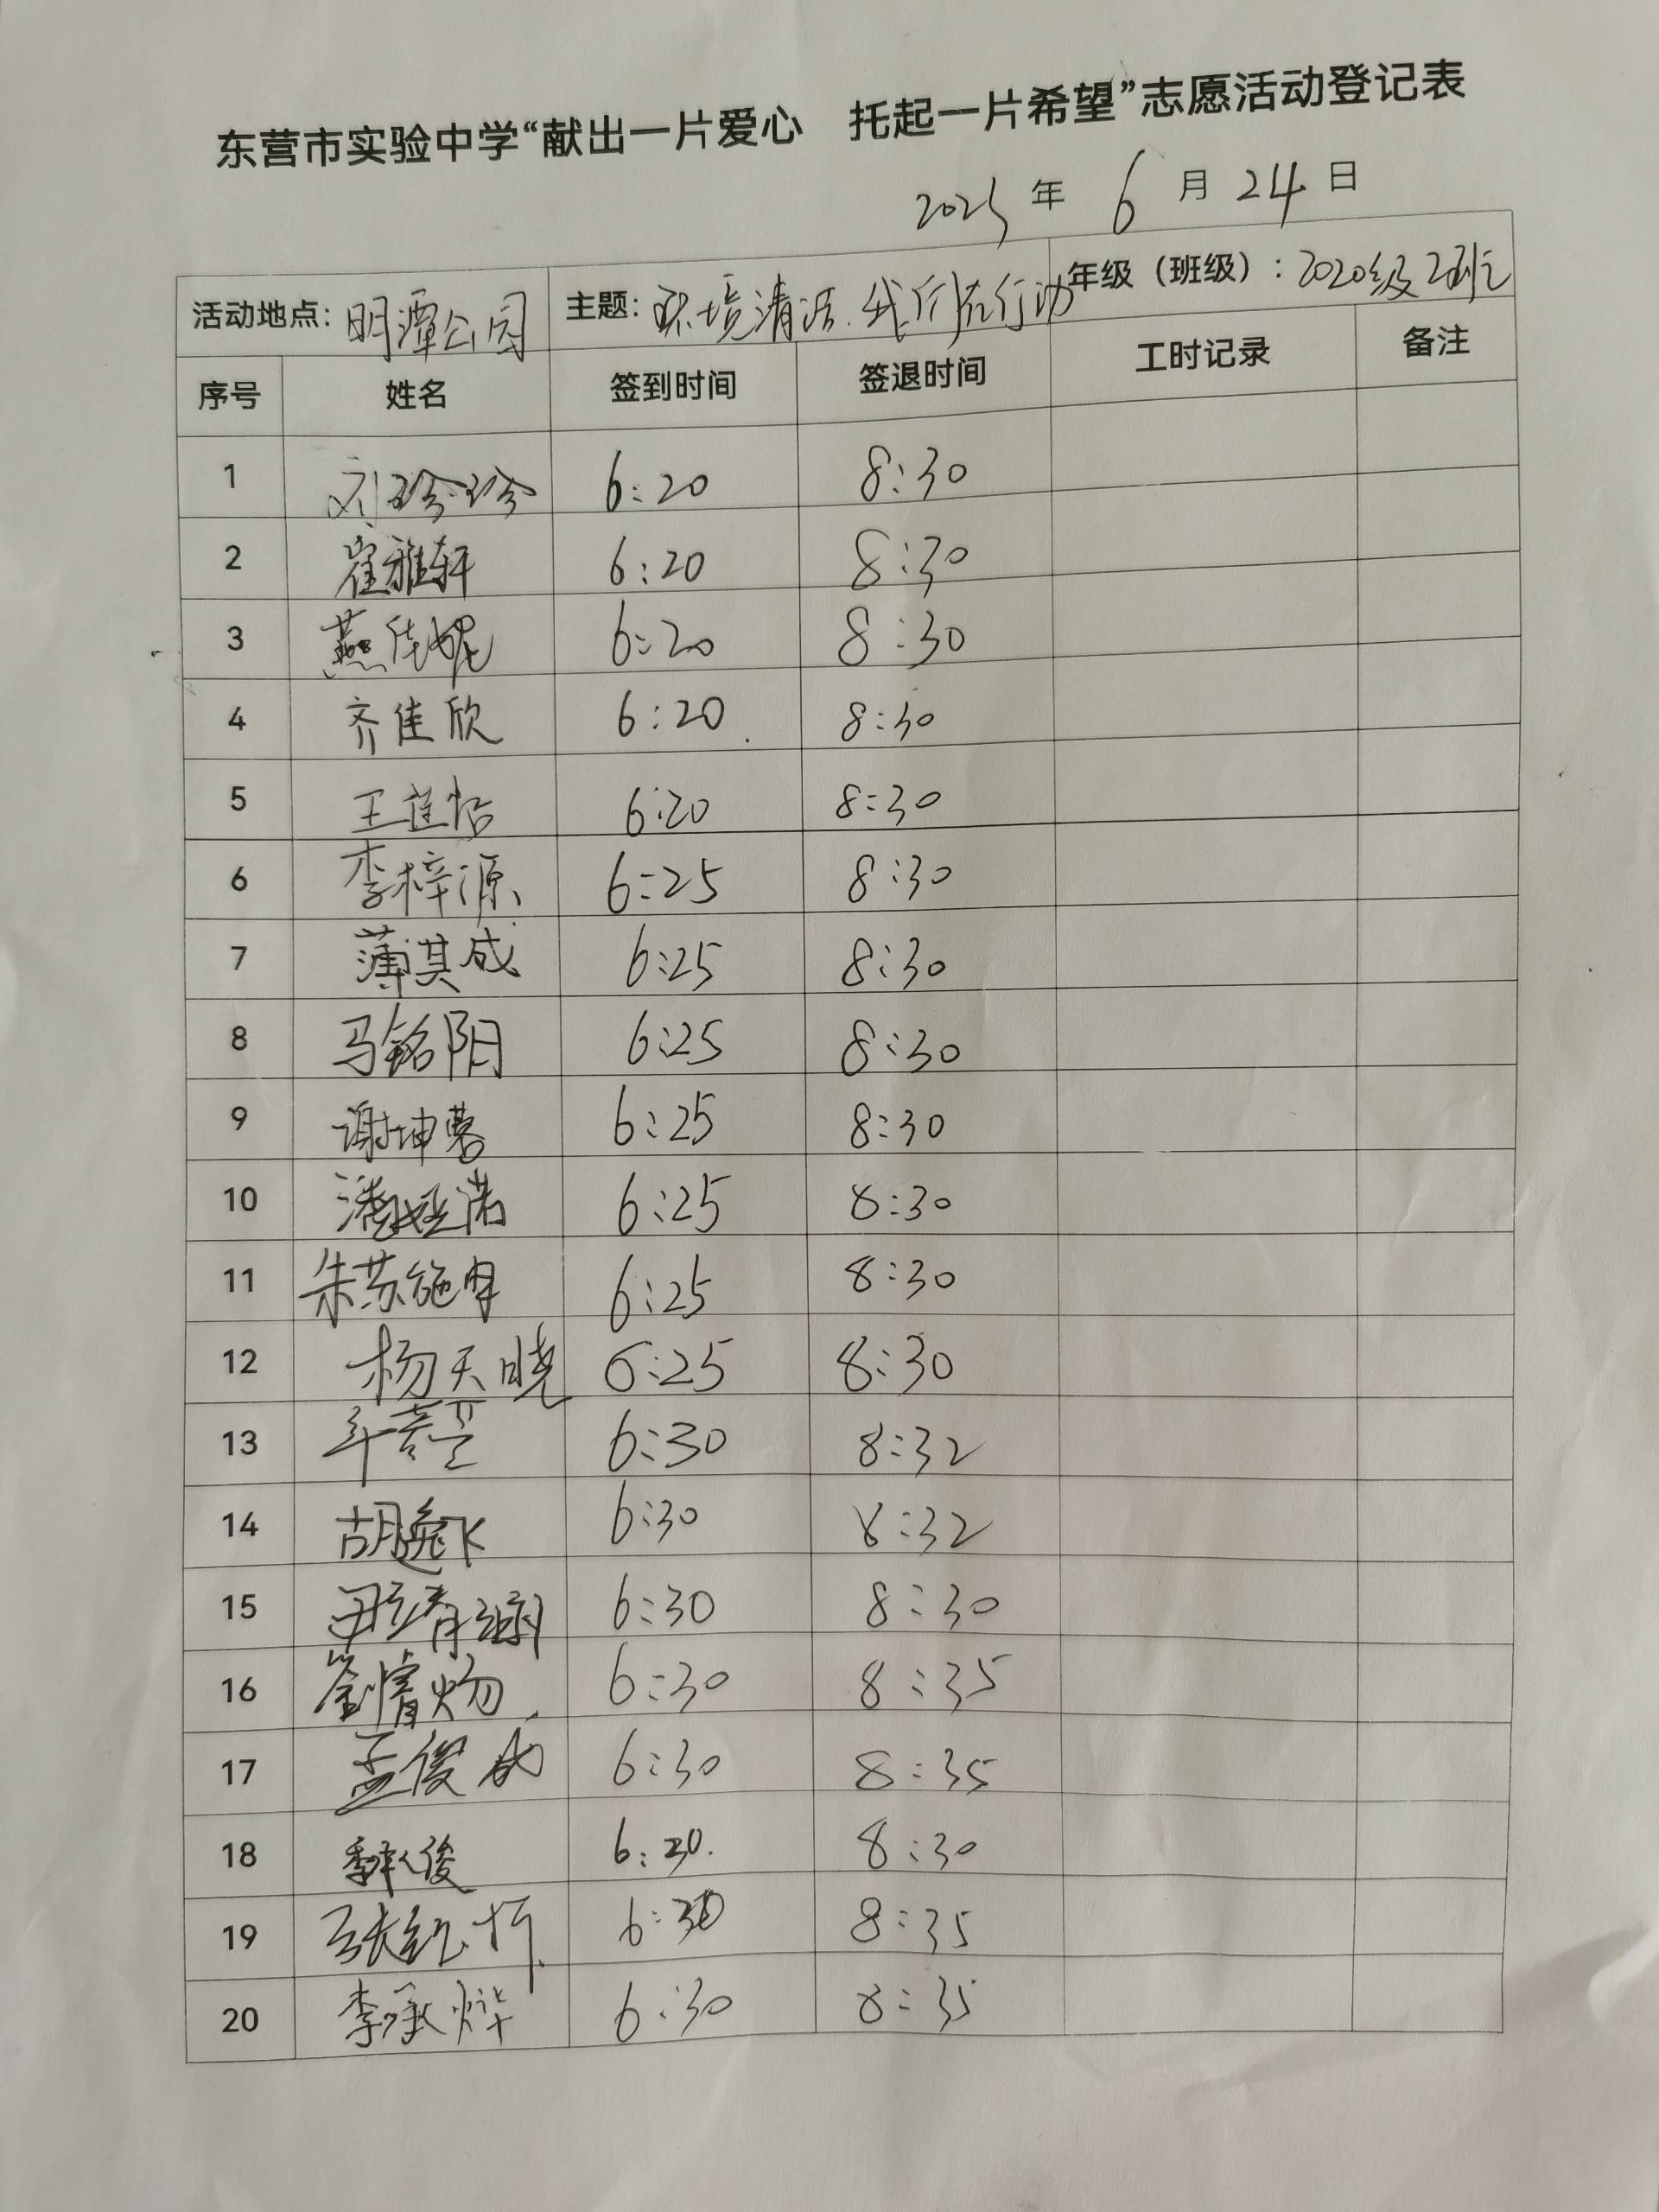 东营市实验中学“献出一片爱心 托起一片希望”志愿活动登记表
2025 年 6 月 24 日
活动地点：明潭公园 主题：环境清洁.我们在行动 年级（班级）：2020级2班
序号 姓名 签到时间 签退时间 工时记录 备注
1 刘珍珍 6:20 8:30
2 崔雅轩 6:20 8:30
3 燕佳妮 6:20 8:30
4 齐佳欣 6:20 8:30
5 王 怡 6:20 8:30
6 李梓源 6:25 8:30
7 薄其成 6:25 8:30
8 马铭阳 6:25 8:30
9 谢坤蓉 6:25 8:30
10 潘娅诺 6:25 8:30
11 朱苏 6:25 8:30
12 杨天晓 6:25 8:30
13 6:30 8:32
14 胡逸飞 6:30 8:32
15 6:30 8:30
16 6:30 8:35
17 孟俊成 6:30 8:35
18 俊 8:30
19 张 6:30 8:35
20 李承烨 6:30 8:35